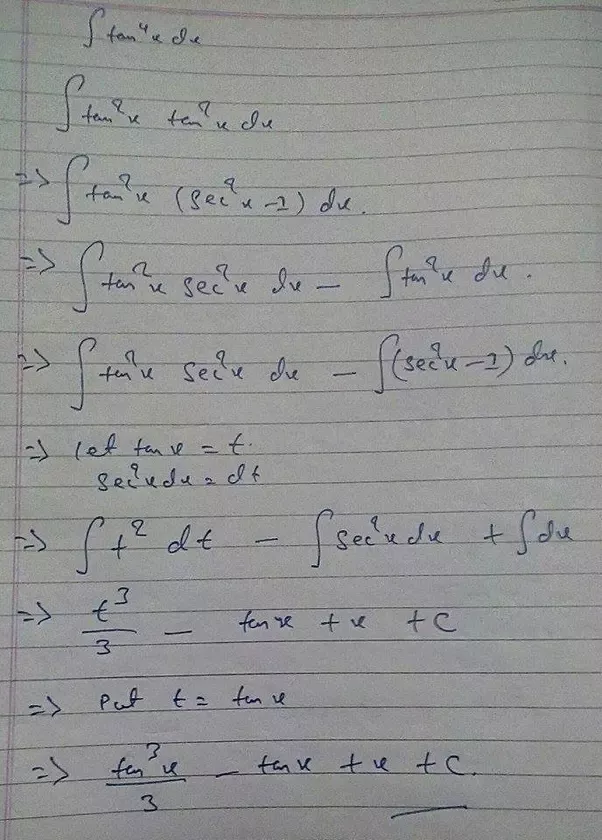 ∫tan⁴x dx
∫tan²x tan²x dx
=> ∫tan²x (sec²x-1) dx.
=> ∫tan²x sec²x dx - ∫tan²x dx.
=> ∫tan²x sec²x dx - ∫(sec²x-1) dx.
=> let tan x = t.
sec²x dx = dt
=> ∫t² dt - ∫sec²x dx + ∫dx
=> t³/3 - tan x + x + C
=> Put t = tan x
=> tan³x/3 - tan x + x + C.